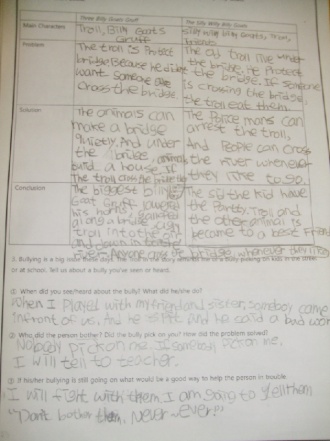 Three Billy Goats Gruff
The Silly Willy Billy Goats
Main Characters
Troll, Billy Goats
Gruff
Silly Willy Billy Goats, Troll,
Problem
The troll is Protect
bridge. Because he didn't
want someone
cross the bridge.
The old troll live under
the bridge. He Protect
the bridge. If someone
is crossing the bridge
the troll eat them
Solution
The animals can
make a bridge
quietly. And under
the bridge animals
build a house. If
The troll
The Police mans can
arrest the troll,
And People can cross
the river whenever
they like to so.
Conclusion
The biggest billy
Goat Gruff lowered
his horns, galloped
along a bridge
troll into the
and down
The the kid have
the Party. Troll and
the other animal is
become to a best Friend
Anyone bridge, whenever they like
1. Bullying is a big issue these days. The troll in the story reminds me of a bully picking on kids in the street
or at school. Tell us about a bully you've seen or heard.
① When did you see/heard about the bully? What did he/she do?
When I played with my friend and sister, somebody came
infront of us. And he spit and he said a bad word
② Who did the person bother? Did the bully pick on you? How did the problem solved?
Nobody pick on me. If somebody pick on me,
I will tell to teacher.
③ If he/her bullying is still going on what would be a good way to help the person in trouble
I will fight with them. I am going to yell them
"Don't bother them. Never ~ ever!"